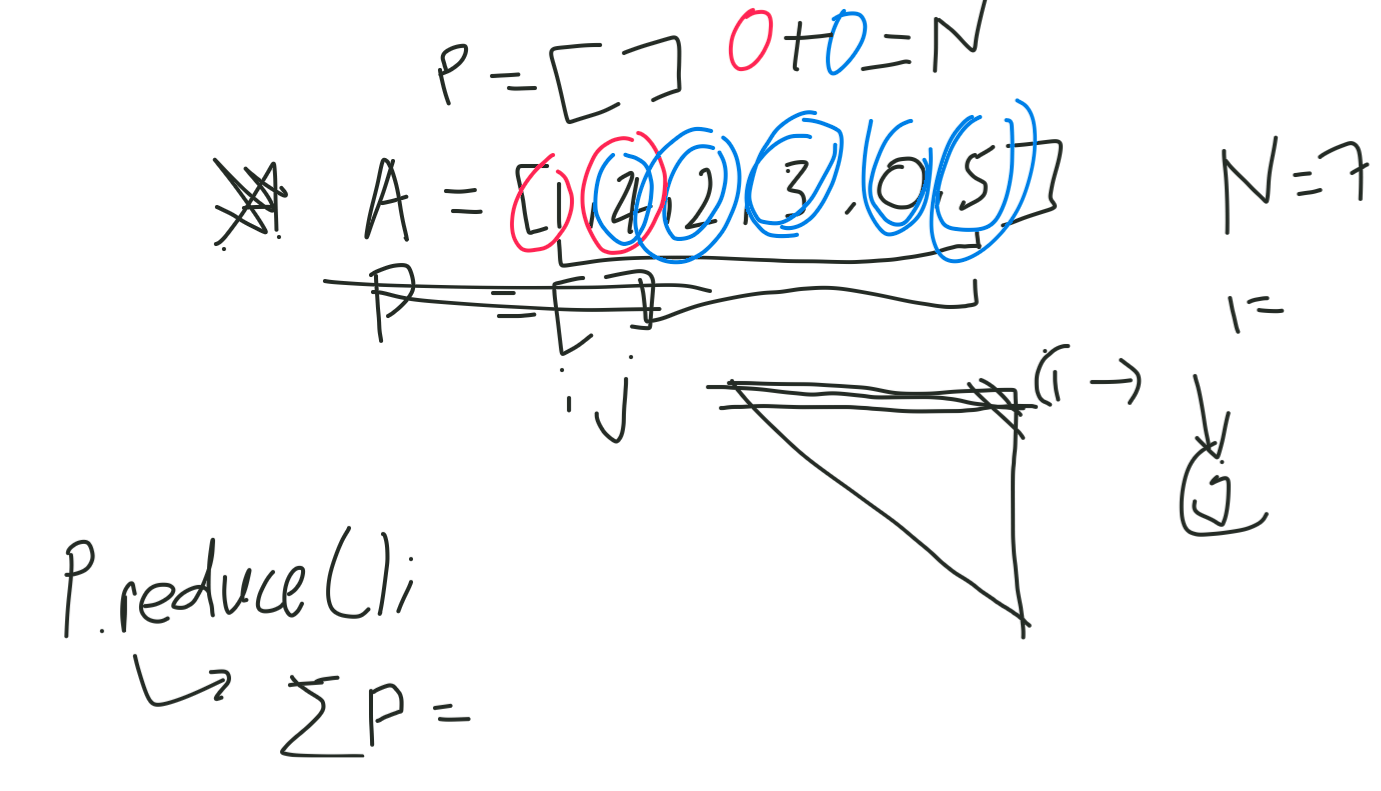 P = [ ] 0 + 0 = N
A = [1, 4, 2, 3, 0, 5] N = 7
P = [ ] 1 =
i j (i →) j
P.reduce();
∑ P =